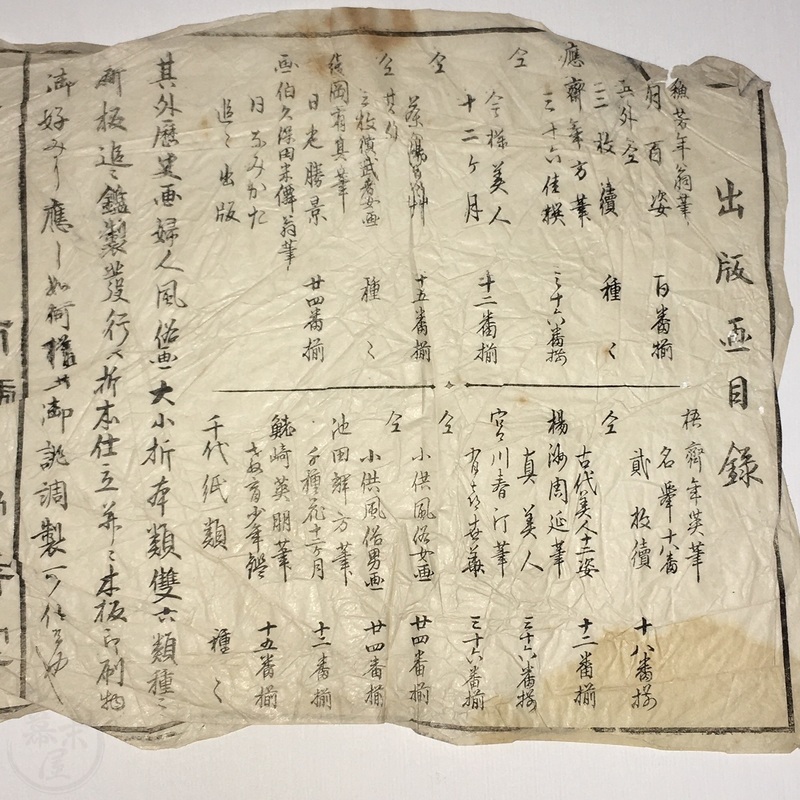 出版画目録
魚芳年翁筆
月百姿 百番揃
三枚續 種〻
應齋年方筆
三十六佳撰 三十六番揃
仝
今様美人
十二ヶ月 十二番揃
仝
茶の湯 十五番揃
仝
三枚續 種〻
日光勝景 廿四番揃
画伯久保田米僊翁筆
日なみかた
追〻出版
梧齋年英筆
名譽十八番
貳枚續 十八番揃
仝
古代美人十二姿 十二番揃
楊洲周延筆
真美人 三十六番揃
宮川春汀筆
有喜世華 三十六番揃
仝
小供風俗女画 廿四番揃
仝
小供風俗男画 廿四番揃
池田輝方筆
千種花十二ヶ月 十二番揃
鰭崎英朋筆
教育少年鑑 十五番揃
千代紙類 種〻
其外歴史画婦人風俗画大小折本類雙六類種〻
新板追〻鑑製發行折本仕立并〻木板印刷物
御好みニ應し如何様共御誂調製可仕候也